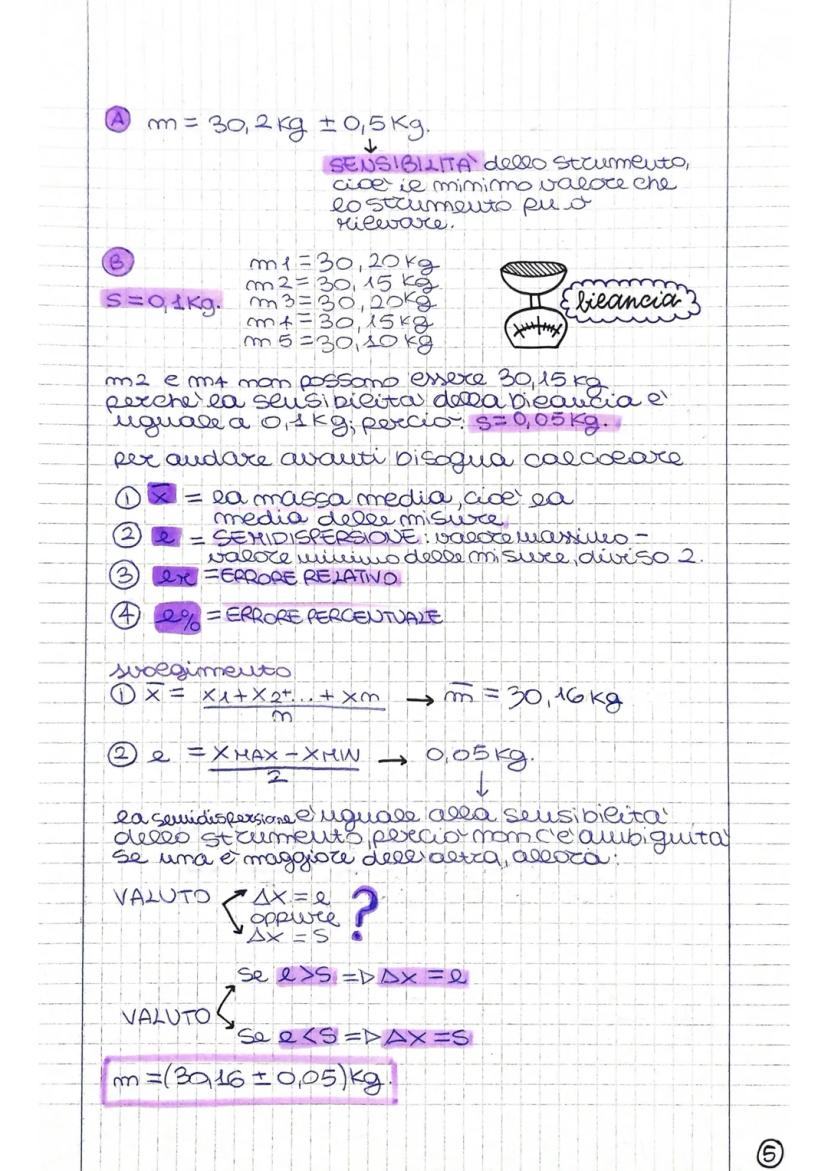 A m = 30,2 kg ± 0,5 Kg.
↓
SENSIBILITA' dello strumento,
cioè il minimo valore che
lo strumento può
rilevare.
B
m1 = 30,20 kg
m2 = 30,15 kg
S = 0,1 Kg. m3 = 30,20 kg
m4 = 30,15 kg
m5 = 30,10 kg
bilancia
m2 e m4 non possono essere 30,15 kg
perchè la sensibilità della bilancia è
uguale a 0,1 kg; perciò: s = 0,05 kg.
per andare avanti bisogna calcolare
① x̄ = la massa media, cioè la
media delle misure
② e = SEMIDISPERSIONE: valore massimo -
valore minimo delle misure, diviso 2.
③ er = ERRORE RELATIVO
④ e% = ERRORE PERCENTUALE
svolgimento
① x̄ = x1 + x2 + ... + xn / n → m̄ = 30,16 kg
② e = XMAX - XMIN / 2 → 0,05 kg.
↓
la semidispersione è uguale alla sensibilità
dello strumento, perciò non c'è ambiguità
se una è maggiore dell'altra, allora:
VALUTO Δx = e
oppure ?
Δx = S
Se e > S => Δx = e
VALUTO
Se e < S => Δx = S
m = (30,16 ± 0,05) kg.
5